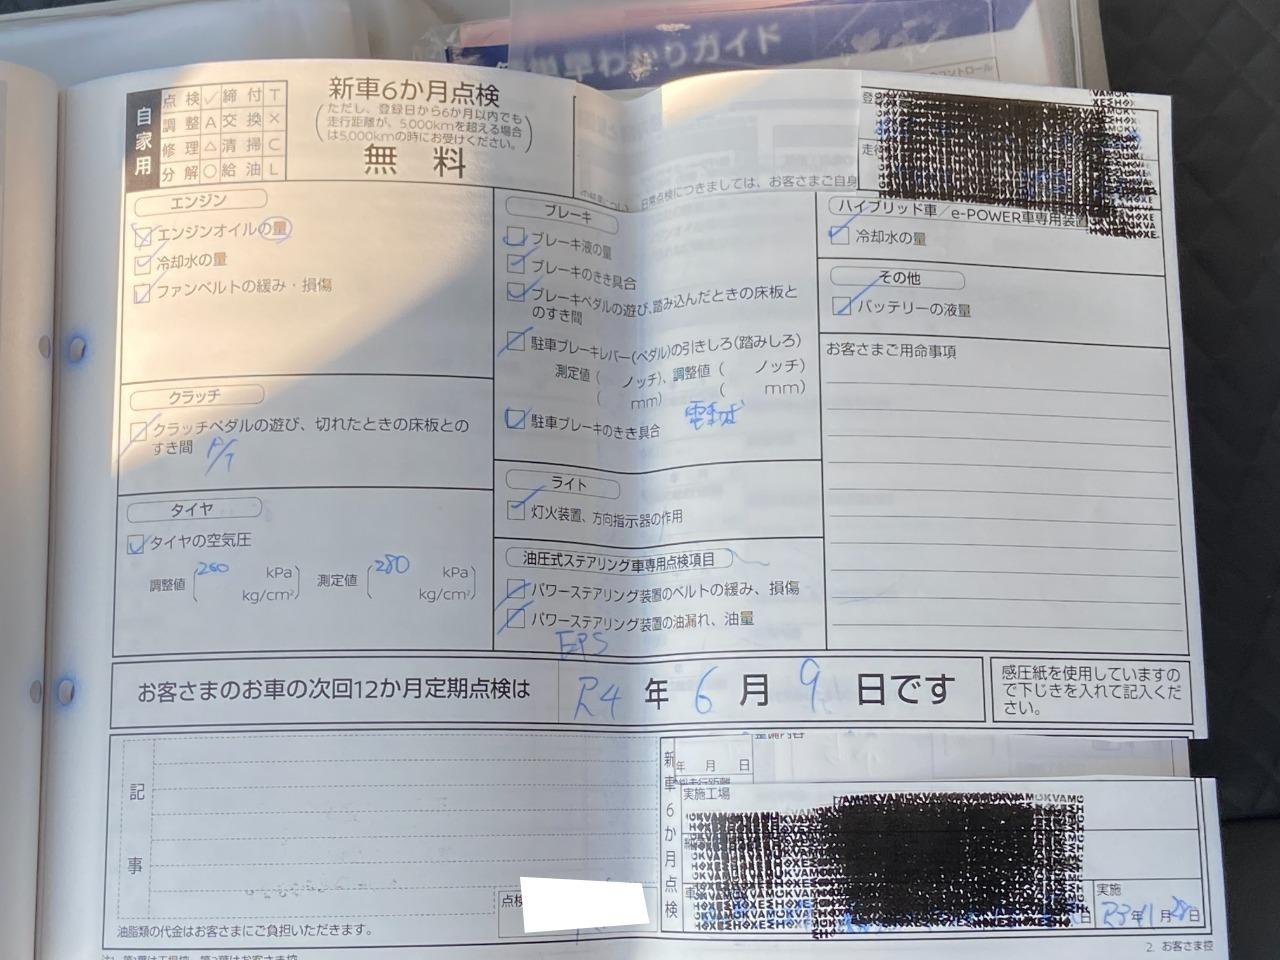 早わかりガイド
コントロール
自家用
点検 ✓ 締付 T
調整 A 交換 ×
修理 △ 清掃 C
分解 ○ 給油 L
新車6か月点検
(ただし、登録日から6か月以内でも
走行距離が、5,000kmを超える場合
は5,000kmの時にお受けください。)
無料
日常点検につきましては、お客さまご自身
エンジン
エンジンオイルの量
冷却水の量
ファンベルトの緩み・損傷
クラッチ
クラッチペダルの遊び、切れたときの床板との
すき間
A/T
タイヤ
タイヤの空気圧
調整値 (260 kPa 測定値 (280 kPa
kg/cm²) kg/cm²)
ブレーキ
ブレーキ液の量
ブレーキのきき具合
ブレーキペダルの遊び、踏み込んだときの床板と
のすき間
駐車ブレーキレバー(ペダル)の引きしろ(踏みしろ)
測定値 ( ノッチ)、調整値 ( ノッチ)
( mm) ( mm)
駐車ブレーキのきき具合
ライト
灯火装置、方向指示器の作用
油圧式ステアリング車専用点検項目
パワーステアリング装置のベルトの緩み、損傷
パワーステアリング装置の油漏れ、油量
EPS
ハイブリッド車/e-POWER車専用装置
冷却水の量
その他
バッテリーの液量
お客さまご用命事項
お客さまのお車の次回12か月定期点検は R4 年 6 月 9 日です
感圧紙を使用していますの
で下じきを入れて記入くだ
さい。
記事
油脂類の代金はお客さまにご負担いただきます。
点検
新車6か月点検
年 月 日
実施工場
日
実施
R3年11月28日
2. お客さま控